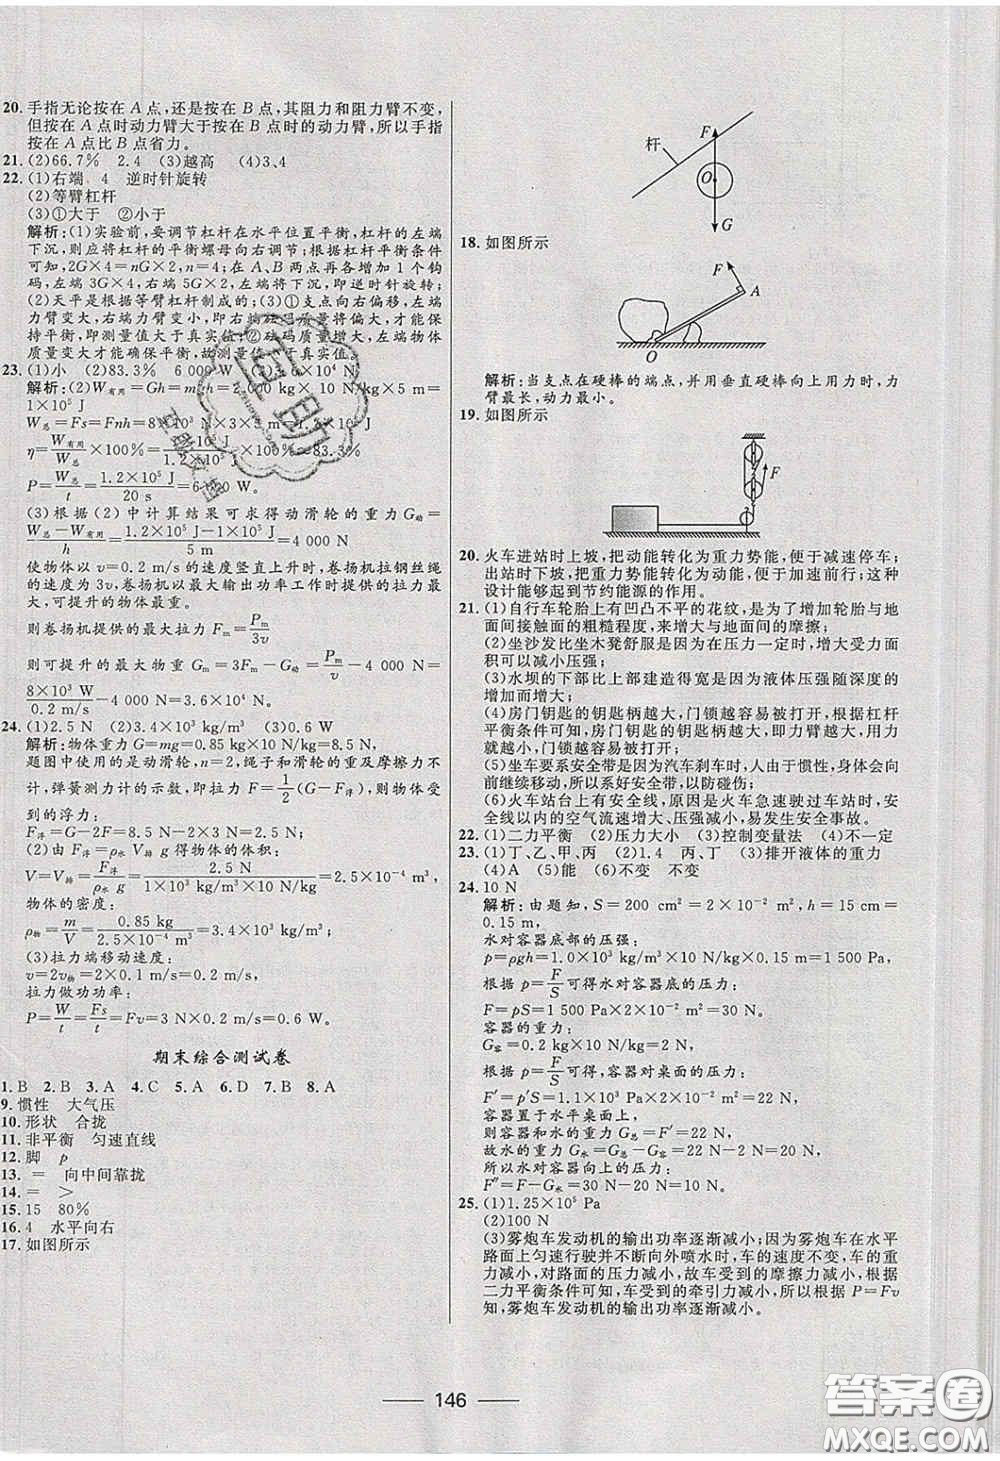 20. 手指无论按在 A 点，还是按在 B 点，其阻力和阻力臂不变，
但按在 A 点时动力臂大于按在 B 点时的动力臂，所以手指
按在 A 点比 B 点省力。
21. (2)66.7% 2.4 (3)越高 (4)3、4
22. (1)右端 4 逆时针旋转
(2)等臂杠杆
(3)①大于 ②小于
解析：(1)实验前，要调节杠杆在水平位置平衡，杠杆的左端
下沉，则应将杠杆的平衡螺母向右调节；根据杠杆平衡条件
可知，2G×4=nG×2，n=4；在 A、B 两点再各增加 1 个钩
码，左端3G×4=12G，右端5G×2=10G，即逆时针旋转；
(2)天平是根据等臂杠杆制成的；(3)①支点向右偏移，左端
力臂变大，右端力臂变小，即右端增大力(质量)，才能保
持平衡，即测量值大于真实值；②砝码磨损，左端物体
质量变大才能确保平衡，故测量值小于真实值。
23. (1)小 (2)83.3% 6 000 W (3)3.6×10⁴ N
解析：(2)W有用=Gh=mgh=2 000 kg×10 N/kg×5 m=
1×10⁵ J
W总=Fs=Fnh=8×10³ N×3×5 m=1.2×10⁵ J
η=W有用/W总×100%=1×10⁵ J/1.2×10⁵ J×100%≈83.3%
P=W总/t=1.2×10⁵ J/20 s=6 000 W。
(3)根据(2)中计算结果可求得动滑轮的重力G动=
W总−W有用/h=1.2×10⁵ J−1×10⁵ J/5 m=4 000 N
使物体以 v=0.2 m/s的速度竖直上升时，卷扬机拉钢丝绳
的速度为3v，卷扬机以最大输出功率工作时提供的拉力最
大，可提升的物体最重。
则卷扬机提供的最大拉力 Fm=Pm/3v
则可提升的最大物重 Gm=3Fm−G动=Pm/v−4 000 N=
8×10³ W/0.2 m/s−4 000 N=3.6×10⁴ N。
24. (1)2.5 N (2)3.4×10³ kg/m³ (3)0.6 W
解析：物体重力G=mg=0.85 kg×10 N/kg=8.5 N，
题图中使用的是动滑轮，n=2，绳子和滑轮的重及摩擦力不
计，弹簧测力计的示数，即拉力 F=1/2(G−F浮)，则物体受
到的浮力：
F浮=G−2F=8.5 N−2×3 N=2.5 N；
(2)由 F浮=ρ水 V排 g 得物体的体积：
V=V排=F浮/ρ水 g=2.5 N/1×10³ kg/m³×10 N/kg=2.5×10⁻⁴ m³，
物体的密度：
ρ物=m/V=0.85 kg/2.5×10⁻⁴ m³=3.4×10³ kg/m³；
(3)拉力端移动速度：
v=2v物=2×0.1 m/s=0.2 m/s，
拉力做功功率：
P=W/t=Fs/t=Fv=3 N×0.2 m/s=0.6 W。
期末综合测试卷
1. B 2. B 3. A 4. C 5. A 6. D 7. B 8. A
9. 惯性 大气压
10. 形状 合拢
11. 非平衡 匀速直线
12. 脚 p
13. = 向中间靠拢
14. = >
15. 15 80%
16. 4 水平向右
17. 如图所示
杆 F O G
18. 如图所示
F A O
解析：当支点在硬棒的端点，并用垂直硬棒向上用力时，力
臂最长，动力最小。
19. 如图所示
F
20. 火车进站时上坡，把动能转化为重力势能，便于减速停车；
出站时下坡，把重力势能转化为动能，便于加速前行；这种
设计能够起到节约能源的作用。
21. (1)自行车轮胎上有凹凸不平的花纹，是为了增加轮胎与地
面间接触面的粗糙程度，来增大与地面间的摩擦；
(2)坐沙发比坐木凳舒服是因为在压力一定时，增大受力面
积可以减小压强；
(3)水坝的下部比上部建造得宽是因为液体压强随深度的
增加而增大；
(4)房门钥匙的钥匙柄越大，门锁越容易被打开，根据杠杆
平衡条件可知，房门钥匙的钥匙柄越大，即力臂越大，越省
力，门锁越容易被打开；
(5)坐车要系安全带是因为汽车刹车时，人由于惯性，会向
前继续移动，所以系好安全带，以防碰伤；
(6)火车站台上有安全线，原因是火车急速驶过车站时，安
全线以内的空气流速增大、压强减小，易发生安全事故。
22. (1)二力平衡 (2)压力大小 (3)控制变量法 (4)不一定
23. (1)丁、乙、甲、丙 (2)1.4 丙、丁 (3)排开液体的重力
(4)A (5)能 (6)不变 不变
24. 10 N
解析：由题知，S=200 cm²=2×10⁻² m²，h=15 cm=
0.15 m，
水对容器底部的压强：
p=ρgh=1.0×10³ kg/m³×10 N/kg×0.15 m=1 500 Pa，
根据 p=F/S可得水对容器底的压力：
F=pS=1 500 Pa×2×10⁻² m²=30 N，
容器的重力：
G容=0.2 kg×10 N/kg=2 N，
根据 p=F/S可得，容器对桌面的压力：
F′=p′S=1.1×10³ Pa×2×10⁻² m²=22 N，
容器置于水平桌面上，
则容器和水的重力 G总=F′=22 N，
故水的重力 G水=G总−G容=22 N−2 N=20 N，
所以水对容器向上的压力：
F″=F−G水=30 N−20 N=10 N。
25. (1)1.25×10⁵ Pa
(2)100 N
(3)雾炮车发动机的输出功率逐渐减小；因为雾炮车在水平
路面上匀速行驶并不断向外喷水时，车的速度不变，车的重
力减小，对路面的压力减小，故车受到的摩擦力减小，根据
二力平衡条件可知，车受到的牵引力减小，根据 P=Fv可
知，雾炮车发动机的输出功率逐渐减小。
146
答案圈
MXQE.COM